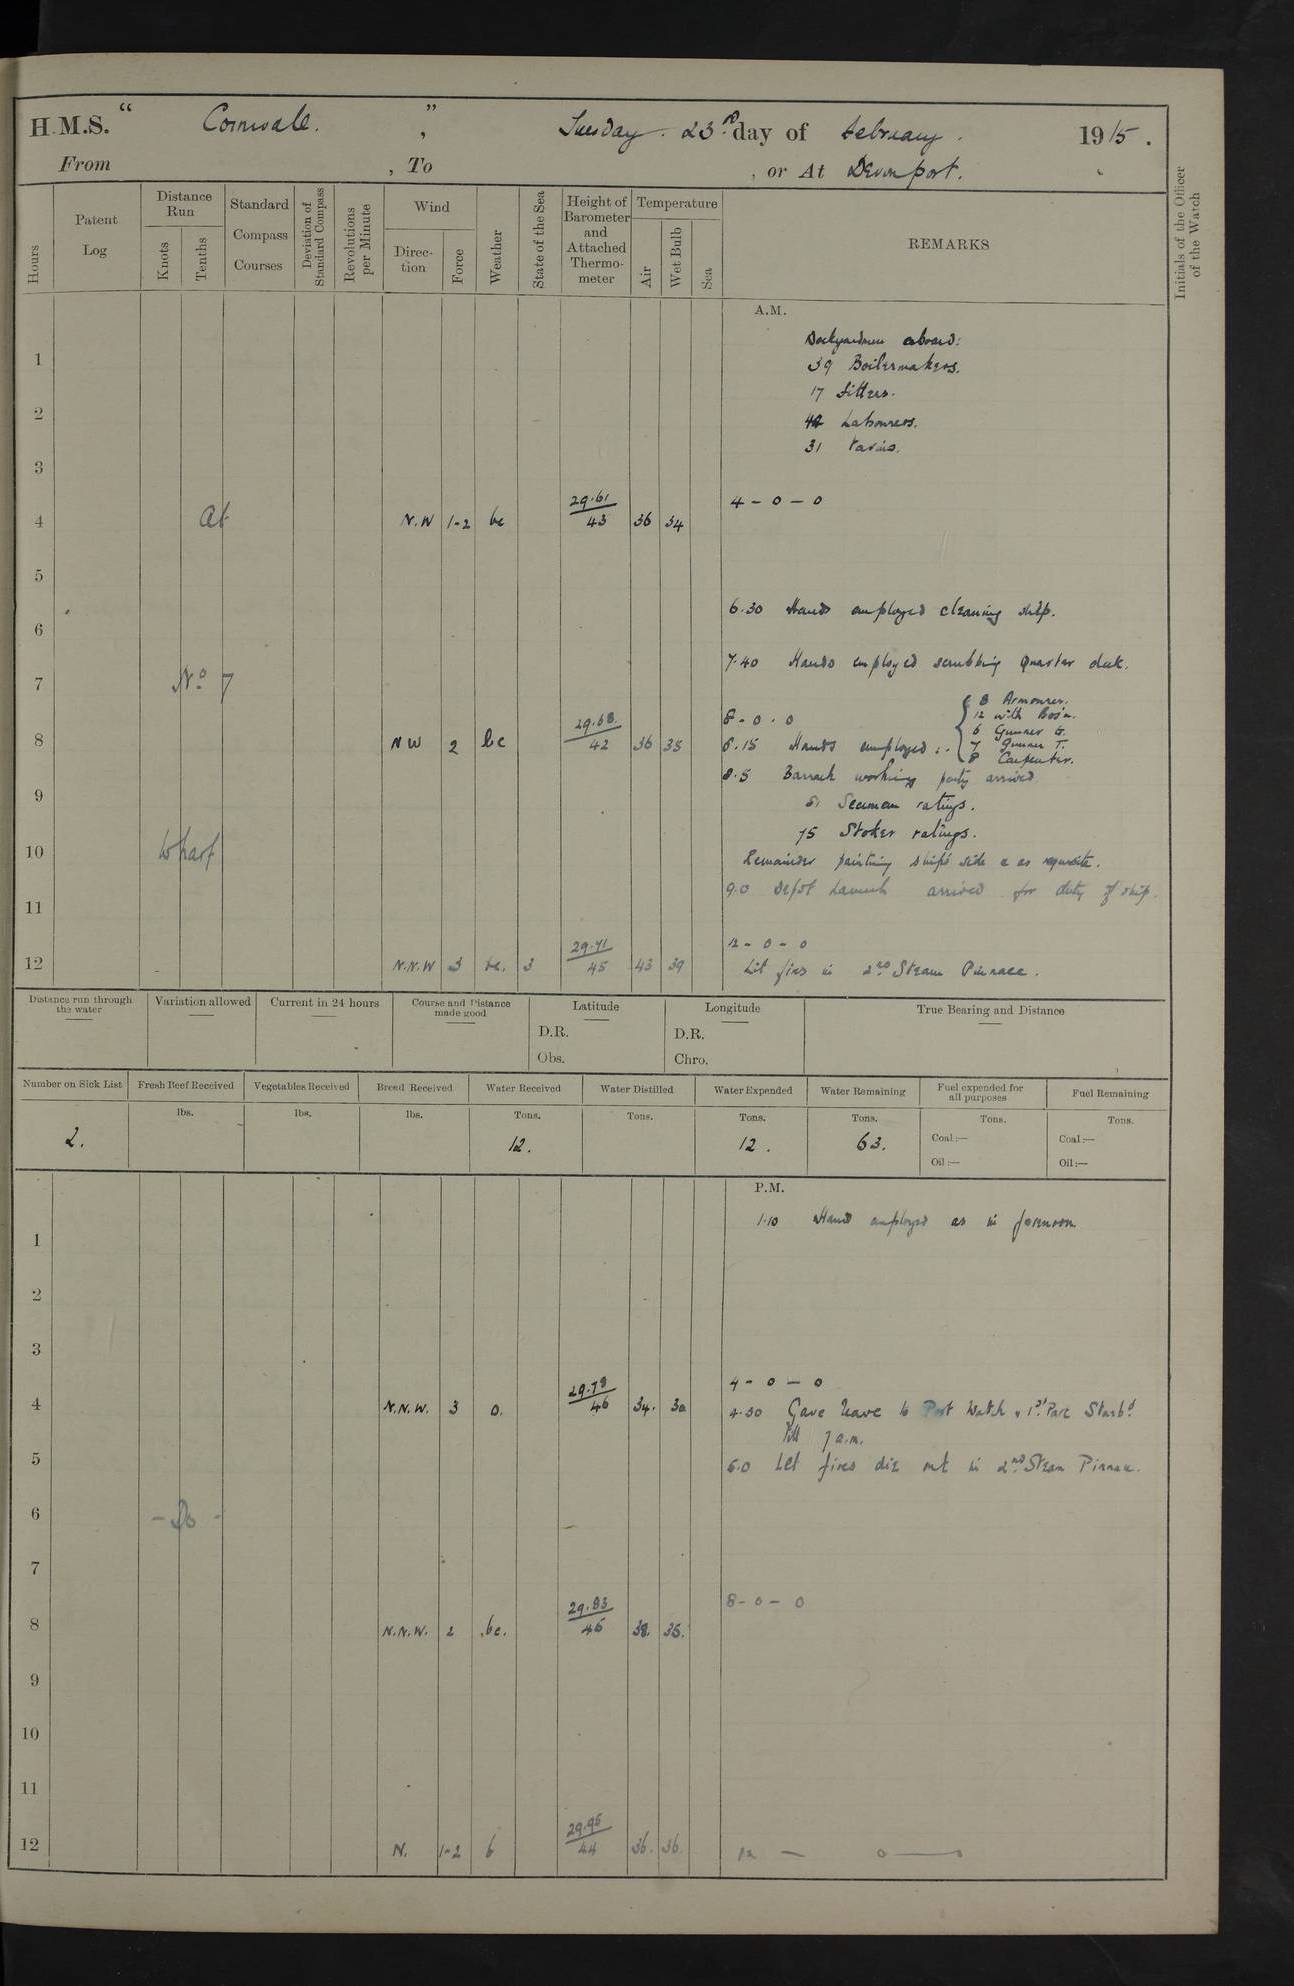 H.M.S. " Cornwall. " , Tuesday. 23rd day of February. 1915.
From , To , or At Devonport.
Hours
Patent Log
Distance Run
Knots
Tenths
Standard Compass Courses
Deviation of Standard Compass
Revolutions per Minute
Wind
Direction
Force
Weather
State of the Sea
Height of Barometer and Attached Thermometer
Temperature
Air
Wet Bulb
Sea
REMARKS
Initials of the Officer of the Watch
A.M.
Dockyardmen aboard:
1 39 Boilermakers.
17 Fitters.
2 Labourers.
31
3
4 At N.W 1-2 bc 29.61 43 36 34 4 - 0 - 0
5
6.30 Hands employed cleaning ship.
6
7.40 Hands employed scrubbing Quarter deck.
7 No. 7
8 NW 2 bc 29.68 42 36 35 8 - 0 - 0
8.15 Hands employed:-
8 Armourer.
12 with Bos'n.
6 Gunner G.
7 Gunner T.
8 Carpenter.
8.5 Barrack working party arrived
9 Seaman ratings.
75 Stoker ratings.
10 Wharf Remainder painting ship's side & as requisite.
9.0 Depot Launch arrived for duty of ship.
11
12 N.N.W 3 bc. 3 29.71 45 43 39 12 - 0 - 0
Lit fires in 2nd Steam Pinnace.
Distance run through the water
Variation allowed
Current in 24 hours
Course and Distance made good
Latitude
D.R.
Obs.
Longitude
D.R.
Chro.
True Bearing and Distance
Number on Sick List
Fresh Beef Received
Vegetables Received
Bread Received
Water Received
Water Distilled
Water Expended
Water Remaining
Fuel expended for all purposes
Fuel Remaining
lbs. lbs. lbs. Tons. Tons. Tons. Tons. Tons. Tons.
2. 12. 12. 63. Coal:— Coal:—
Oil:— Oil:—
P.M.
1.10 Hands employed as in forenoon
1
2
3
4 N.N.W. 3 o. 29.79 46 34. 30 4 - 0 - 0
4.30 Gave leave to Port Watch & 1st Part Starbd
till 7 a.m.
5 6.0 Let fires die out in 2nd Steam Pinnace.
6 - Do -
7
8 N.N.W. 2 bc. 29.83 46 38. 35. 8 - 0 - 0
9
10
11
12 N. 1-2 b 29.95 44 36. 36. 12 - 0 — 0